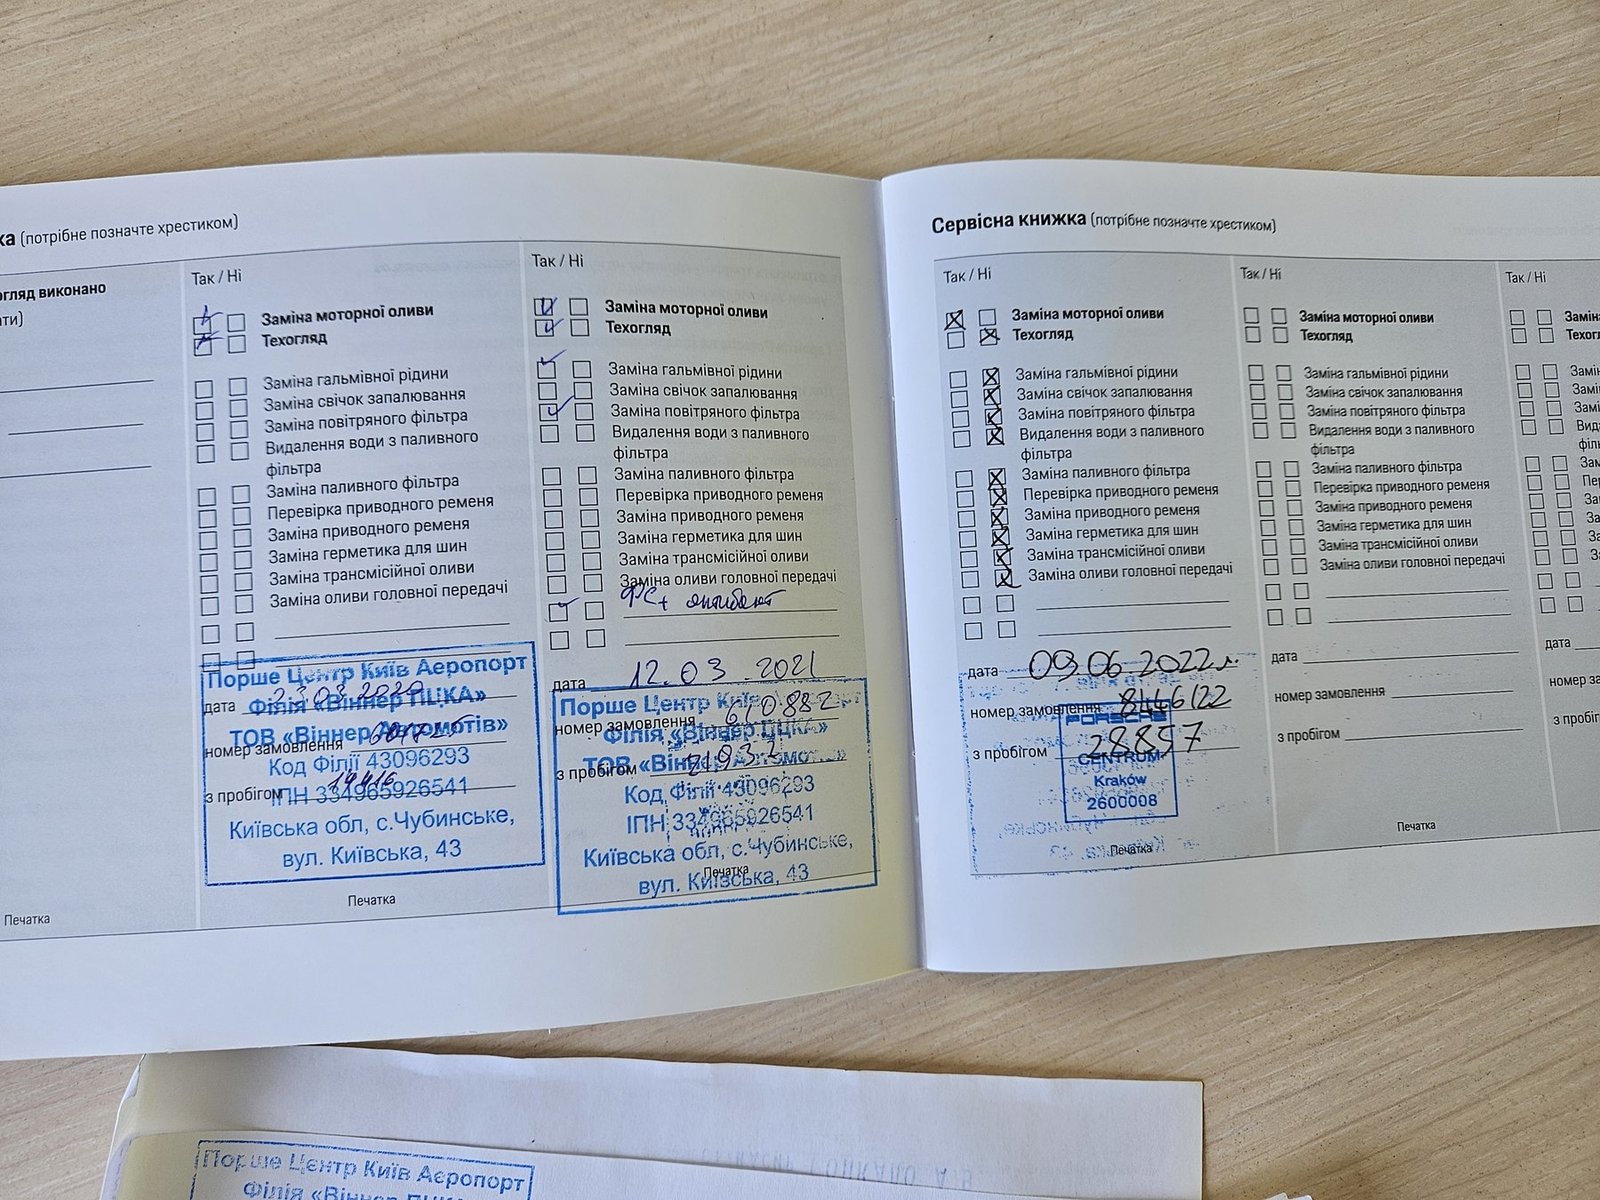 ка (потрібне позначте хрестиком)
огляд виконано
ати)
Печатка
Так / Ні
Заміна моторної оливи
Техогляд
Заміна гальмівної рідини
Заміна свічок запалювання
Заміна повітряного фільтра
Видалення води з паливного
фільтра
Заміна паливного фільтра
Перевірка приводного ременя
Заміна приводного ременя
Заміна герметика для шин
Заміна трансмісійної оливи
Заміна оливи головної передачі
Порше Центр Київ Аеропорт
дата 23.03.2020
Філія «Віннер ПЦКА»
ТОВ «Віннер Автомотів»
номер замовлення
Код Філії 43096293
з пробігом 14416
ІПН 334965926541
Київська обл, с.Чубинське,
вул. Київська, 43
Печатка
Так / Ні
Заміна моторної оливи
Техогляд
Заміна гальмівної рідини
Заміна свічок запалювання
Заміна повітряного фільтра
Видалення води з паливного
фільтра
Заміна паливного фільтра
Перевірка приводного ременя
Заміна приводного ременя
Заміна герметика для шин
Заміна трансмісійної оливи
Заміна оливи головної передачі
ФС+ антибакт
дата 12.03.2021
Порше Центр Київ Аеропорт
номер замовлення 610882
Філія «Віннер ПЦКА»
ТОВ «Віннер Автомо
з пробігом 21932
Код Філії 43096293
ІПН 334965926541
Київська обл, с.Чубинське,
вул. Київська, 43
Печатка
Сервісна книжка (потрібне позначте хрестиком)
Так / Ні
Заміна моторної оливи
Техогляд
Заміна гальмівної рідини
Заміна свічок запалювання
Заміна повітряного фільтра
Видалення води з паливного
фільтра
Заміна паливного фільтра
Перевірка приводного ременя
Заміна приводного ременя
Заміна герметика для шин
Заміна трансмісійної оливи
Заміна оливи головної передачі
дата 09.06.2022r.
номер замовлення 8446/22
PORSCHE
з пробігом 28857
CENTRUM
Kraków
2600008
Печатка
Так / Ні
Заміна моторної оливи
Техогляд
Заміна гальмівної рідини
Заміна свічок запалювання
Заміна повітряного фільтра
Видалення води з паливного
фільтра
Заміна паливного фільтра
Перевірка приводного ременя
Заміна приводного ременя
Заміна герметика для шин
Заміна трансмісійної оливи
Заміна оливи головної передачі
дата
номер замовлення
з пробігом
Печатка
Так / Ні
дата
номер за
з пробіг
Порше Центр Київ Аеропорт
Філія «Віннер ПЦКА»